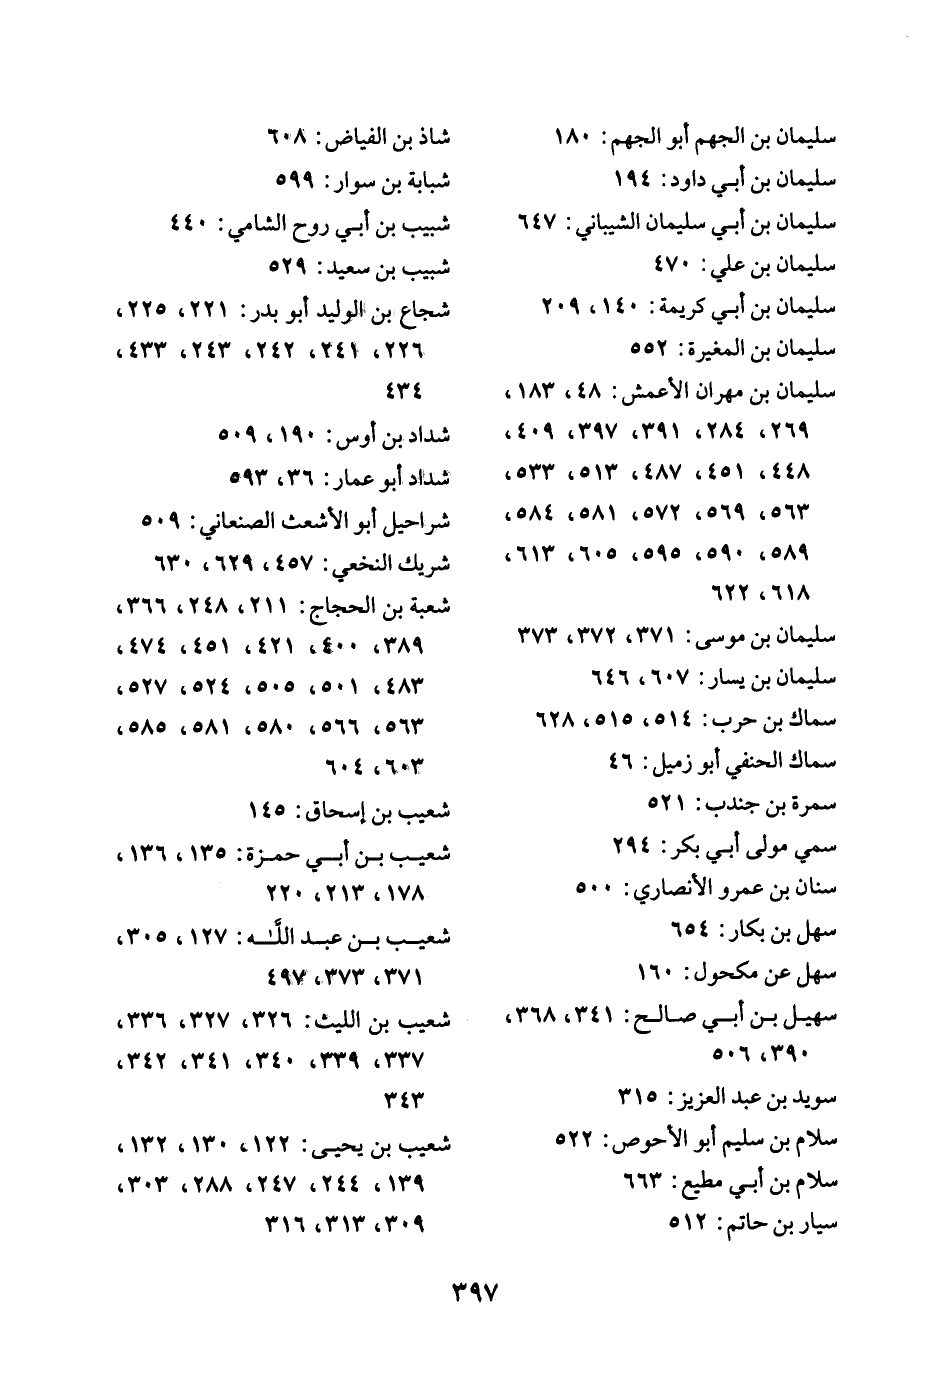 سليمان بن الجهم أبو الجهم: ١٨٠
سليمان بن أبي داود: ١٩٤
سليمان بن أبي سليمان الشيباني: ٦٤٧
سليمان بن علي: ٤٧٠
سليمان بن أبي كريمة: ١٤٠، ٢٠٩
سليمان بن المغيرة: ٥٥٢
سليمان بن مهران الأعمش: ٤٨، ١٨٣،
٢٦٩، ٢٨٤، ٣٩١، ٣٩٧، ٤٠٩،
٤٤٨، ٤٥١، ٤٨٧، ٥١٣، ٥٣٣،
٥٦٣، ٥٦٩، ٥٧٢، ٥٨١، ٥٨٤،
٥٨٩، ٥٩٠، ٥٩٥، ٦٠٥، ٦١٣،
٦١٨، ٦٢٢
سليمان بن موسى: ٣٧١، ٣٧٢، ٣٧٣
سليمان بن يسار: ٦٠٧، ٦٤٦
سماك بن حرب: ٥١٤، ٥١٥، ٦٢٨
سماك الحنفي أبو زميل: ٤٦
سمرة بن جندب: ٥٢١
سمي مولى أبي بكر: ٢٩٤
سنان بن عمرو الأنصاري: ٥٠٠
سهل بن بكار: ٦٥٤
سهل عن مكحول: ١٦٠
سهيل بن أبي صالح: ٣٤١، ٣٦٨،
٣٩٠، ٥٠٦
سويد بن عبد العزيز: ٣١٥
سلام بن سليم أبو الأحوص: ٥٢٢
سلام بن أبي مطيع: ٦٦٣
سيار بن حاتم: ٥١٢
شاذ بن الفياض: ٦٠٨
شبابة بن سوار: ٥٩٩
شبيب بن أبي روح الشامي: ٤٤٠
شبيب بن سعيد: ٥٢٩
شجاع بن الوليد أبو بدر: ٢٢١، ٢٢٥،
٢٢٦، ٢٤١، ٢٤٢، ٢٤٣، ٤٣٣،
٤٣٤
شداد بن أوس: ١٩٠، ٥٠٩
شداد أبو عمار: ٣٦، ٥٩٣
شراحيل أبو الأشعث الصنعاني: ٥٠٩
شريك النخعي: ٤٥٧، ٦٢٩، ٦٣٠
شعبة بن الحجاج: ٢١١، ٢٤٨، ٣٦٦،
٣٨٩، ٤٠٠، ٤٢١، ٤٥١، ٤٧٤،
٤٨٣، ٥٠١، ٥٠٥، ٥٢٤، ٥٢٧،
٥٦٣، ٥٦٦، ٥٨٠، ٥٨١، ٥٨٥،
٦٠٣، ٦٠٤
شعيب بن إسحاق: ١٤٥
شعيب بن أبي حمزة: ١٣٥، ١٣٦،
١٧٨، ٢١٣، ٢٢٠
شعيب بن عبد اللَّه: ١٢٧، ٣٠٥،
٣٧١، ٣٧٣، ٤٩٧
شعيب بن الليث: ٣٢٦، ٣٢٧، ٣٣٦،
٣٣٧، ٣٣٩، ٣٤٠، ٣٤١، ٣٤٢،
٣٤٣
شعيب بن يحيى: ١٢٢، ١٣٠، ١٣٢،
١٣٩، ٢٤٤، ٢٤٧، ٢٨٨، ٣٠٣،
٣٠٩، ٣١٣، ٣١٦
٣٩٧